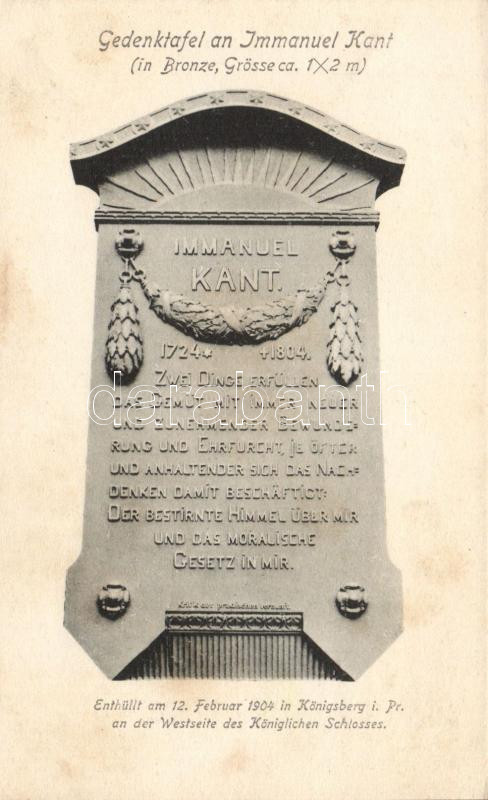 Gedenktafel an Immanuel Kant
(in Bronze, Grösse ca. 1X2 m)
IMMANUEL
KANT.
1724* +1804.
ZWEI DINGE ERFÜLLEN
DAS GEMÜT MIT IMMER NEUER
UND ZUNEHMENDER BEWUNDE-
RUNG UND EHRFURCHT, JE ÖFTER
UND ANHALTENDER SICH DAS NACH-
DENKEN DAMIT BESCHÄFTIGT:
DER BESTIRNTE HIMMEL ÜBER MIR
UND DAS MORALISCHE
GESETZ IN MIR.
Kritik der praktischen Vernunft.
darabanth
Enthüllt am 12. Februar 1904 in Königsberg i. Pr.
an der Westseite des Königlichen Schlosses.